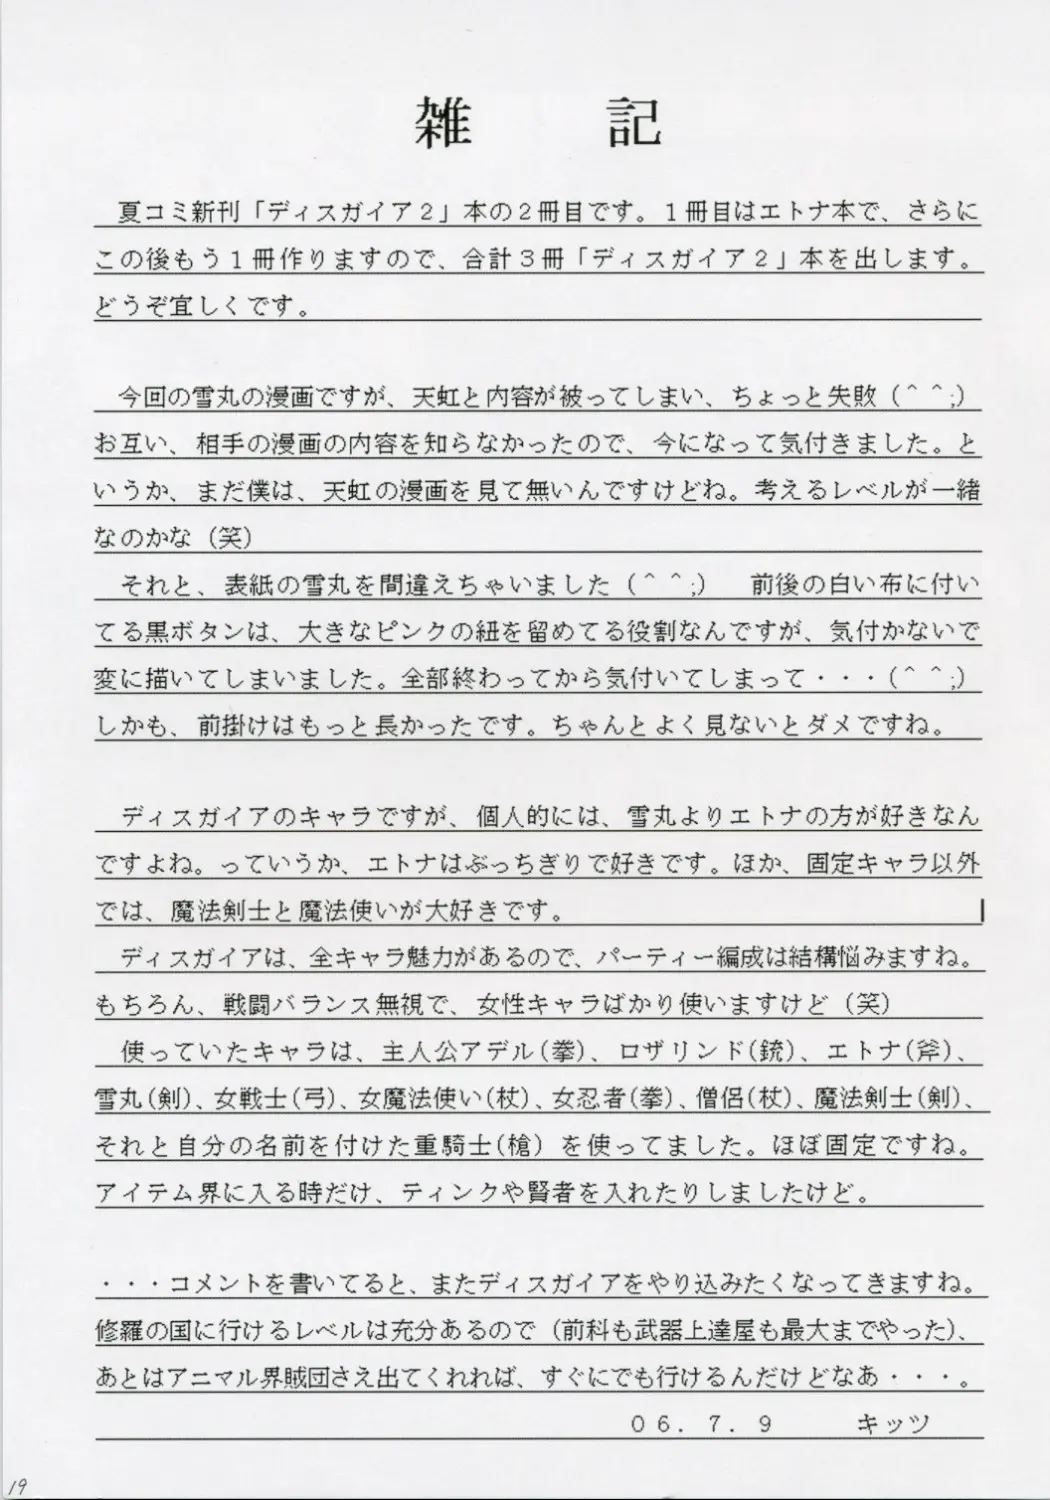 雑　　記
　夏コミ新刊「ディスガイア２」本の２冊目です。１冊目はエトナ本で、さらに
この後もう１冊作りますので、合計３冊「ディスガイア２」本を出します。
どうぞ宜しくです。
　今回の雪丸の漫画ですが、天虹と内容が被ってしまい、ちょっと失敗（＾＾;）
お互い、相手の漫画の内容を知らなかったので、今になって気付きました。と
いうか、まだ僕は、天虹の漫画を見て無いんですけどね。考えるレベルが一緒
なのかな（笑）
　それと、表紙の雪丸を間違えちゃいました（＾＾;）　前後の白い布に付い
てる黒ボタンは、大きなピンクの紐を留めてる役割なんですが、気付かないで
変に描いてしまいました。全部終わってから気付いてしまって・・・（＾＾;）
しかも、前掛けはもっと長かったです。ちゃんとよく見ないとダメですね。
　ディスガイアのキャラですが、個人的には、雪丸よりエトナの方が好きなん
ですよね。っていうか、エトナはぶっちぎりで好きです。ほか、固定キャラ以外
では、魔法剣士と魔法使いが大好きです。
　ディスガイアは、全キャラ魅力があるので、パーティー編成は結構悩みますね。
もちろん、戦闘バランス無視で、女性キャラばかり使いますけど（笑）
　使っていたキャラは、主人公アデル(拳)、ロザリンド(銃)、エトナ(斧)、
雪丸(剣)、女戦士(弓)、女魔法使い(杖)、女忍者(拳)、僧侶(杖)、魔法剣士(剣)、
それと自分の名前を付けた重騎士(槍）を使ってました。ほぼ固定ですね。
アイテム界に入る時だけ、ティンクや賢者を入れたりしましたけど。
・・・コメントを書いてると、またディスガイアをやり込みたくなってきますね。
修羅の国に行けるレベルは充分あるので（前科も武器上達屋も最大までやった）、
あとはアニマル界賊団さえ出てくれれば、すぐにでも行けるんだけどなあ・・・。
０６．７．９　　　キッツ
19